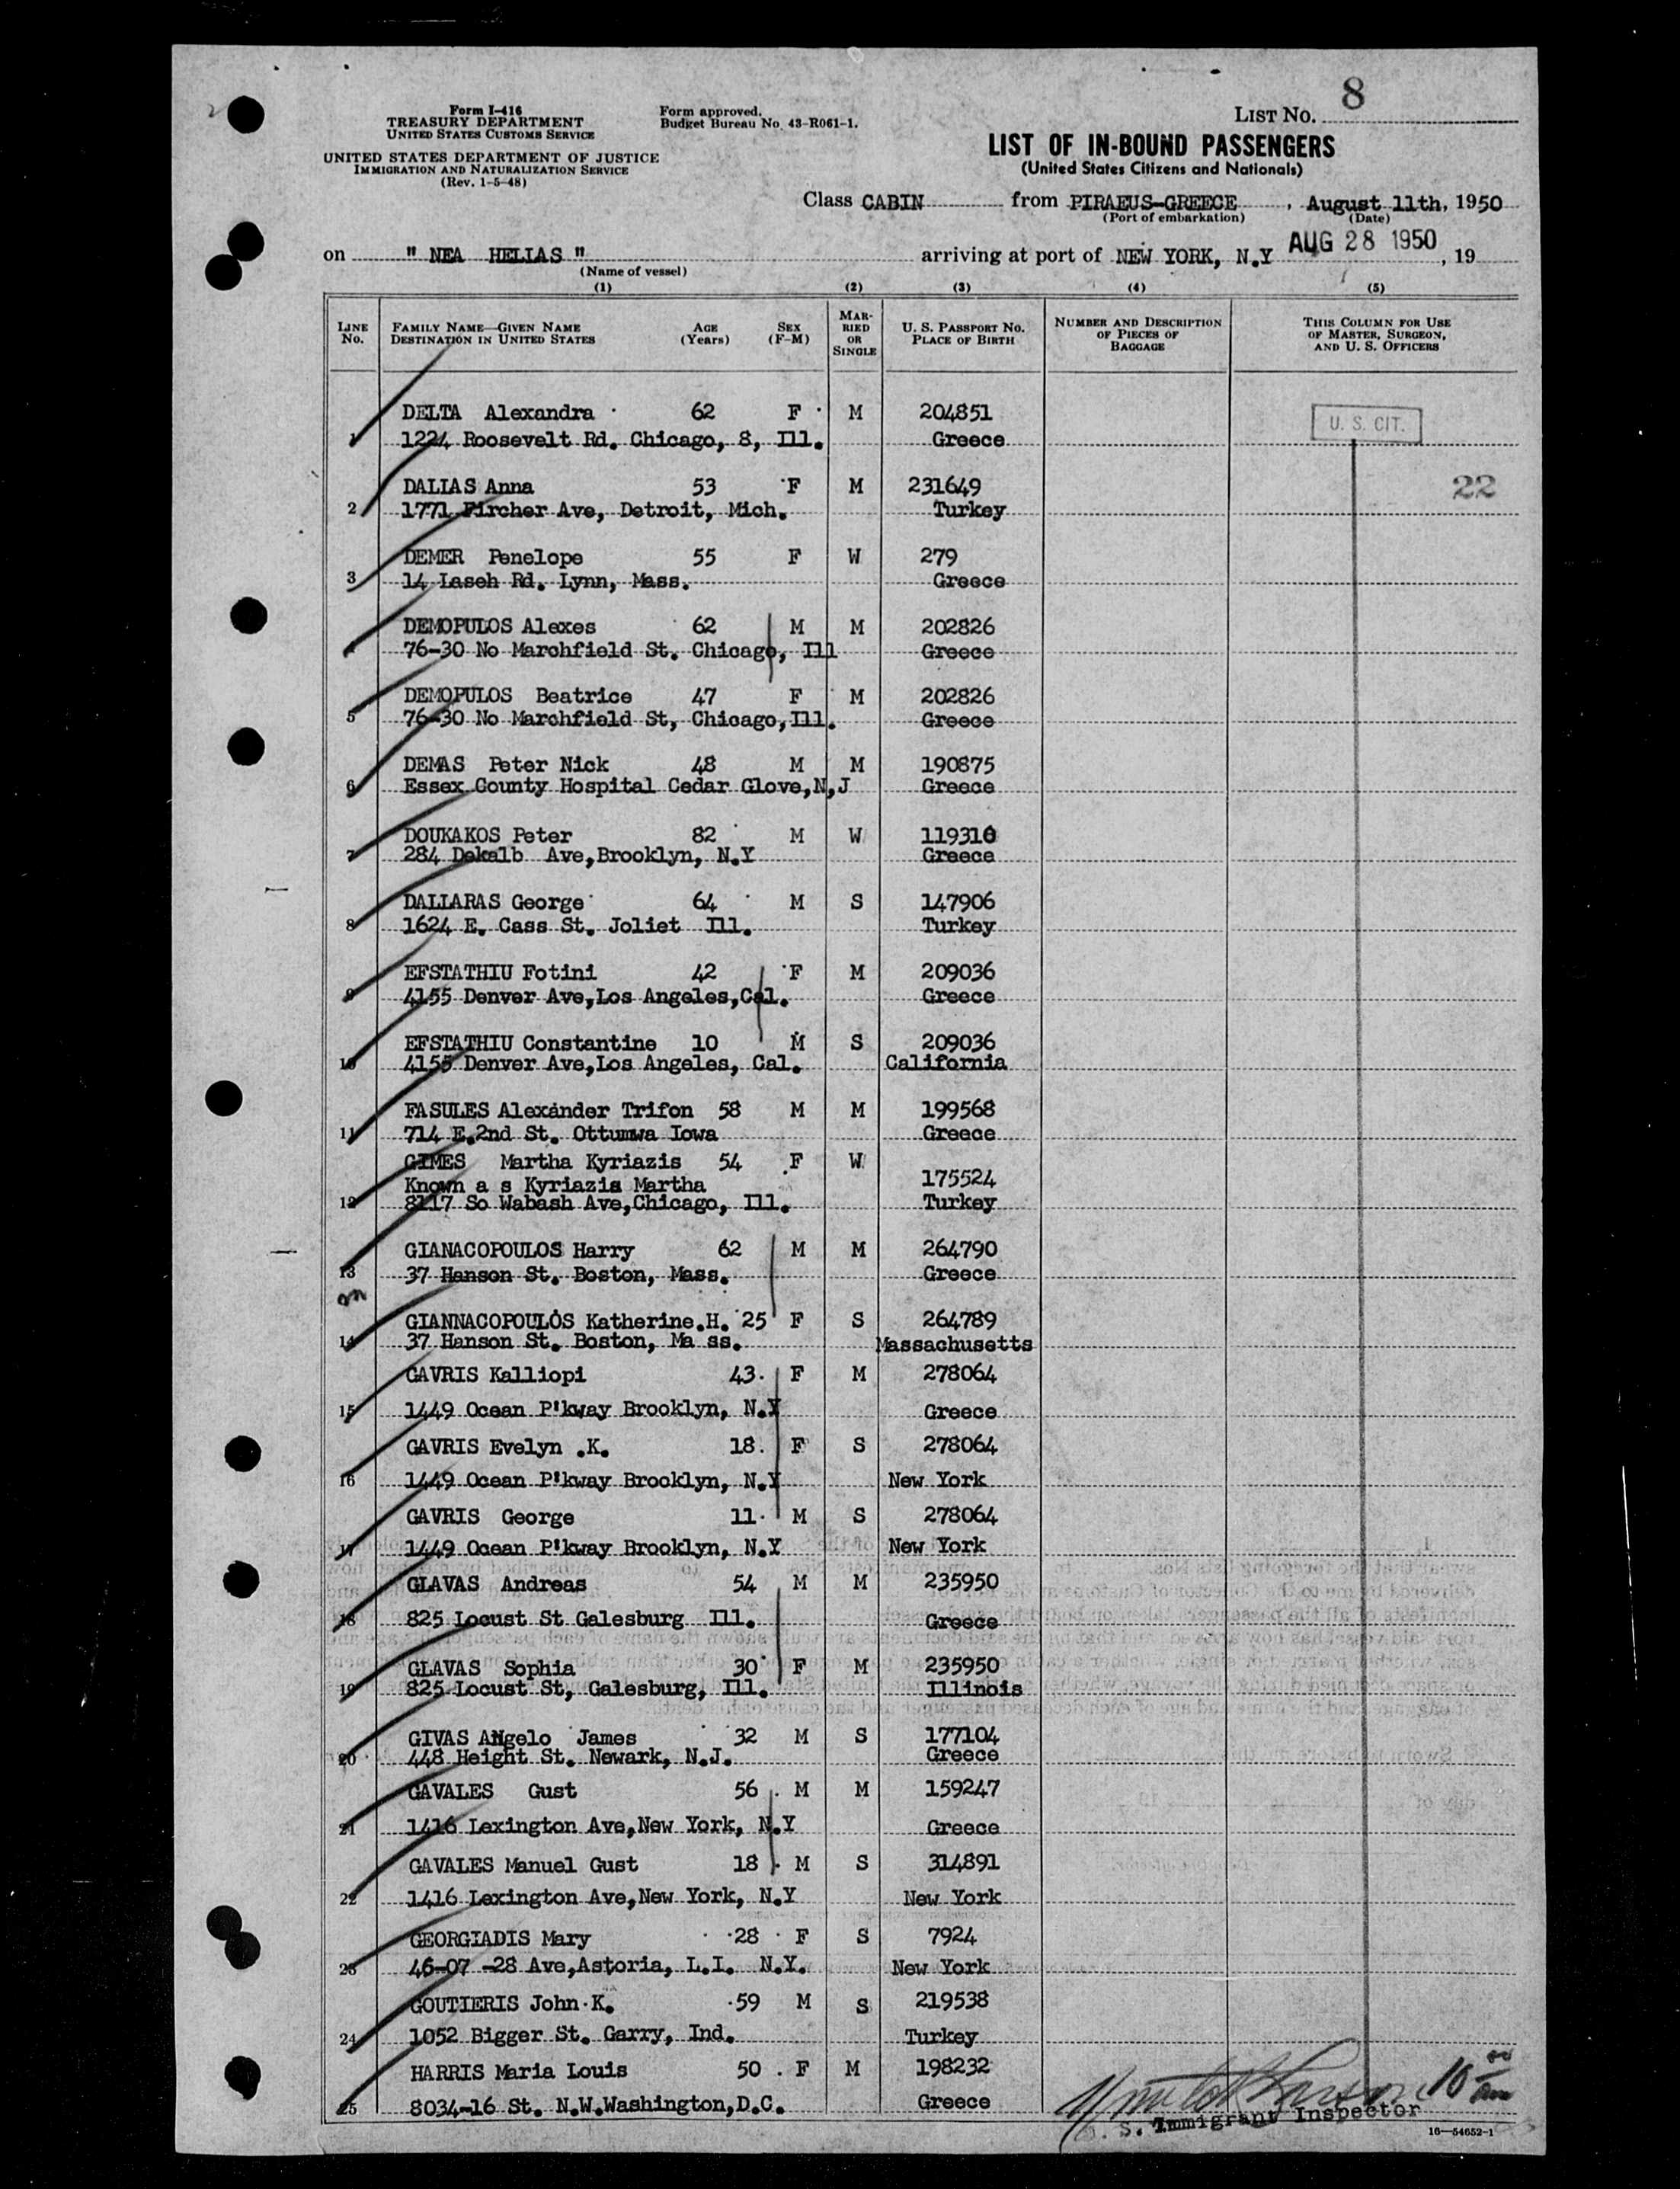 8
Form I-416
TREASURY DEPARTMENT
UNITED STATES CUSTOMS SERVICE
UNITED STATES DEPARTMENT OF JUSTICE
IMMIGRATION AND NATURALIZATION SERVICE
(Rev. 1-5-48)
Form approved.
Budget Bureau No. 43-R061-1.
LIST NO.
LIST OF IN-BOUND PASSENGERS
(United States Citizens and Nationals)
Class CABIN from PIRAEUS-GREECE, August 11th, 1950
(Port of embarkation) (Date)
on " NEA HELIAS " arriving at port of NEW YORK, N.Y AUG 28 1950, 19
(Name of vessel)
(1) (2) (3) (4) (5)
LINE NO. FAMILY NAME—GIVEN NAME DESTINATION IN UNITED STATES AGE (Years) SEX (F-M) MARRIED OR SINGLE U. S. PASSPORT NO. PLACE OF BIRTH NUMBER AND DESCRIPTION OF PIECES OF BAGGAGE THIS COLUMN FOR USE OF MASTER, SURGEON, AND U. S. OFFICERS
DELTA Alexandra 62 F M 204851 U. S. CIT.
1 1224 Roosevelt Rd. Chicago, 8, Ill. Greece
DALIAS Anna 53 F M 231649 22
2 1771 Fircher Ave, Detroit, Mich. Turkey
DEMER Penelope 55 F W 279
3 14 Laseh Rd. Lynn, Mass. Greece
DEMOPULOS Alexes 62 M M 202826
4 76-30 No Marchfield St. Chicago, Ill Greece
DEMOPULOS Beatrice 47 F M 202826
5 76-30 No Marchfield St, Chicago,Ill. Greece
DEMAS Peter Nick 48 M M 190875
6 Essex County Hospital Cedar Glove,N,J Greece
DOUKAKOS Peter 82 M W 119310
7 284 Dekalb Ave,Brooklyn, N.Y Greece
DALLARAS George 64 M S 147906
8 1624 E. Cass St. Joliet Ill. Turkey
EFSTATHIU Fotini 42 F M 209036
9 4155 Denver Ave,Los Angeles,Cal. Greece
EFSTATHIU Constantine 10 M S 209036
10 4155 Denver Ave,Los Angeles, Cal. California
FASULES Alexander Trifon 58 M M 199568
11 714 E.2nd St. Ottumwa Iowa Greece
GIMES Martha Kyriazis 54 F W 175524
Known a s Kyriazis Martha
12 8117 So Wabash Ave,Chicago, Ill. Turkey
GIANACOPOULOS Harry 62 M M 264790
13 37 Hanson St. Boston, Mass. Greece
GIANNACOPOULOS Katherine.H. 25 F S 264789
14 37 Hanson St. Boston, Ma ss. Massachusetts
GAVRIS Kalliopi 43. F M 278064
15 1449 Ocean P'kway Brooklyn, N.Y Greece
GAVRIS Evelyn .K. 18. F S 278064
16 1449 Ocean P'kway Brooklyn, N.Y New York
GAVRIS George 11. M S 278064
17 1449 Ocean P'kway Brooklyn, N.Y New York
GLAVAS Andreas 54 M M 235950
18 825 Locust St Galesburg Ill. Greece
GLAVAS Sophia 30 F M 235950
19 825 Locust St, Galesburg, Ill. Illinois
GIVAS ANgelo James 32 M S 177104
20 448 Height St. Newark, N.J. Greece
GAVALES Gust 56 M M 159247
21 1416 Lexington Ave,New York, N.Y Greece
GAVALES Manuel Gust 18 M S 314891
22 1416 Lexington Ave,New York, N.Y New York
GEORGIADIS Mary 28 F S 7924
23 46-07 -28 Ave,Astoria, L.I. N.Y. New York
GOUTIERIS John K. 59 M S 219538
24 1052 Bigger St. Garry, Ind. Turkey
HARRIS Maria Louis 50 F M 198232
25 8034-16 St. N.W.Washington,D.C. Greece
10 00 am
S. Immigrant Inspector
16—54652-1